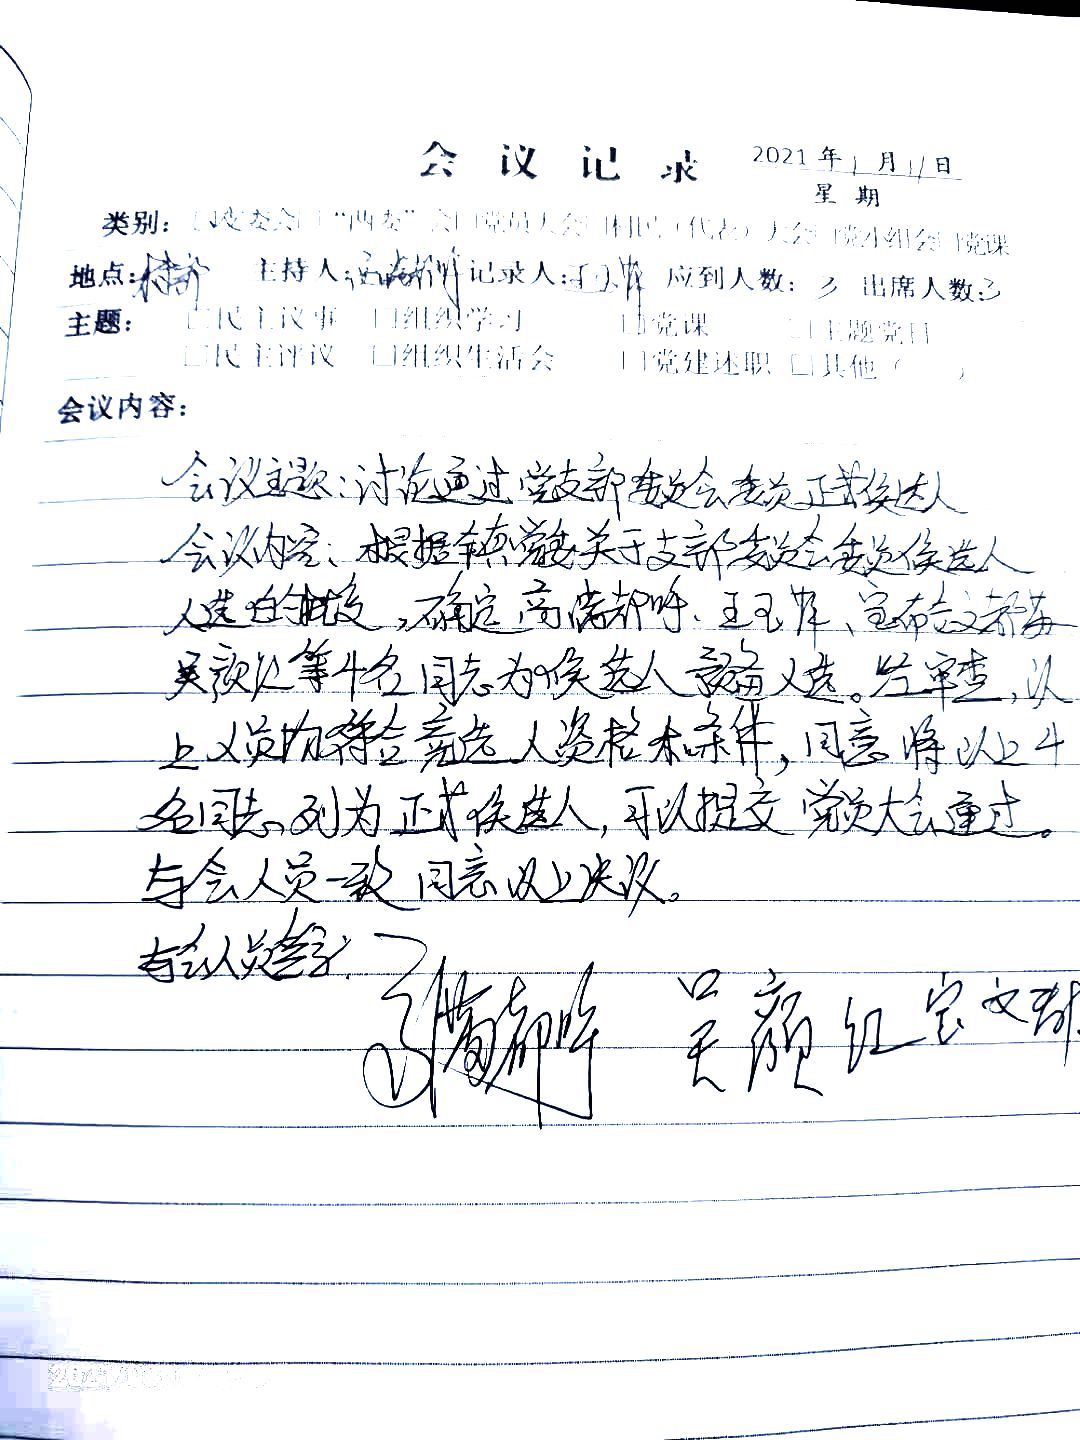 会议记录
2021年1月11日
星期
类别：□支委会□“两委”会□党员大会□村民（代表）大会□党小组会□党课
地点： 主持人： 记录人： 应到人数：3 出席人数：3
主题：□民主议事 □组织学习 □党课 □主题党日
□民主评议 □组织生活会 □党建述职 □其他（ ）
会议内容：
会议主题：讨论通过党支部委员会委员正式候选人
会议内容：根据镇党委关于支部委员会委员候选人
人选的批复，确定 王玉
吴颜 等4名同志为候选人预备人选。经审查，以
上人员均符合竞选人资格 条件，同意将以上4
名同志列为正式候选人，可以提交党员大会通过。
与会人员一致同意以上决议。
与会人员签字：
吴颜红 宝文